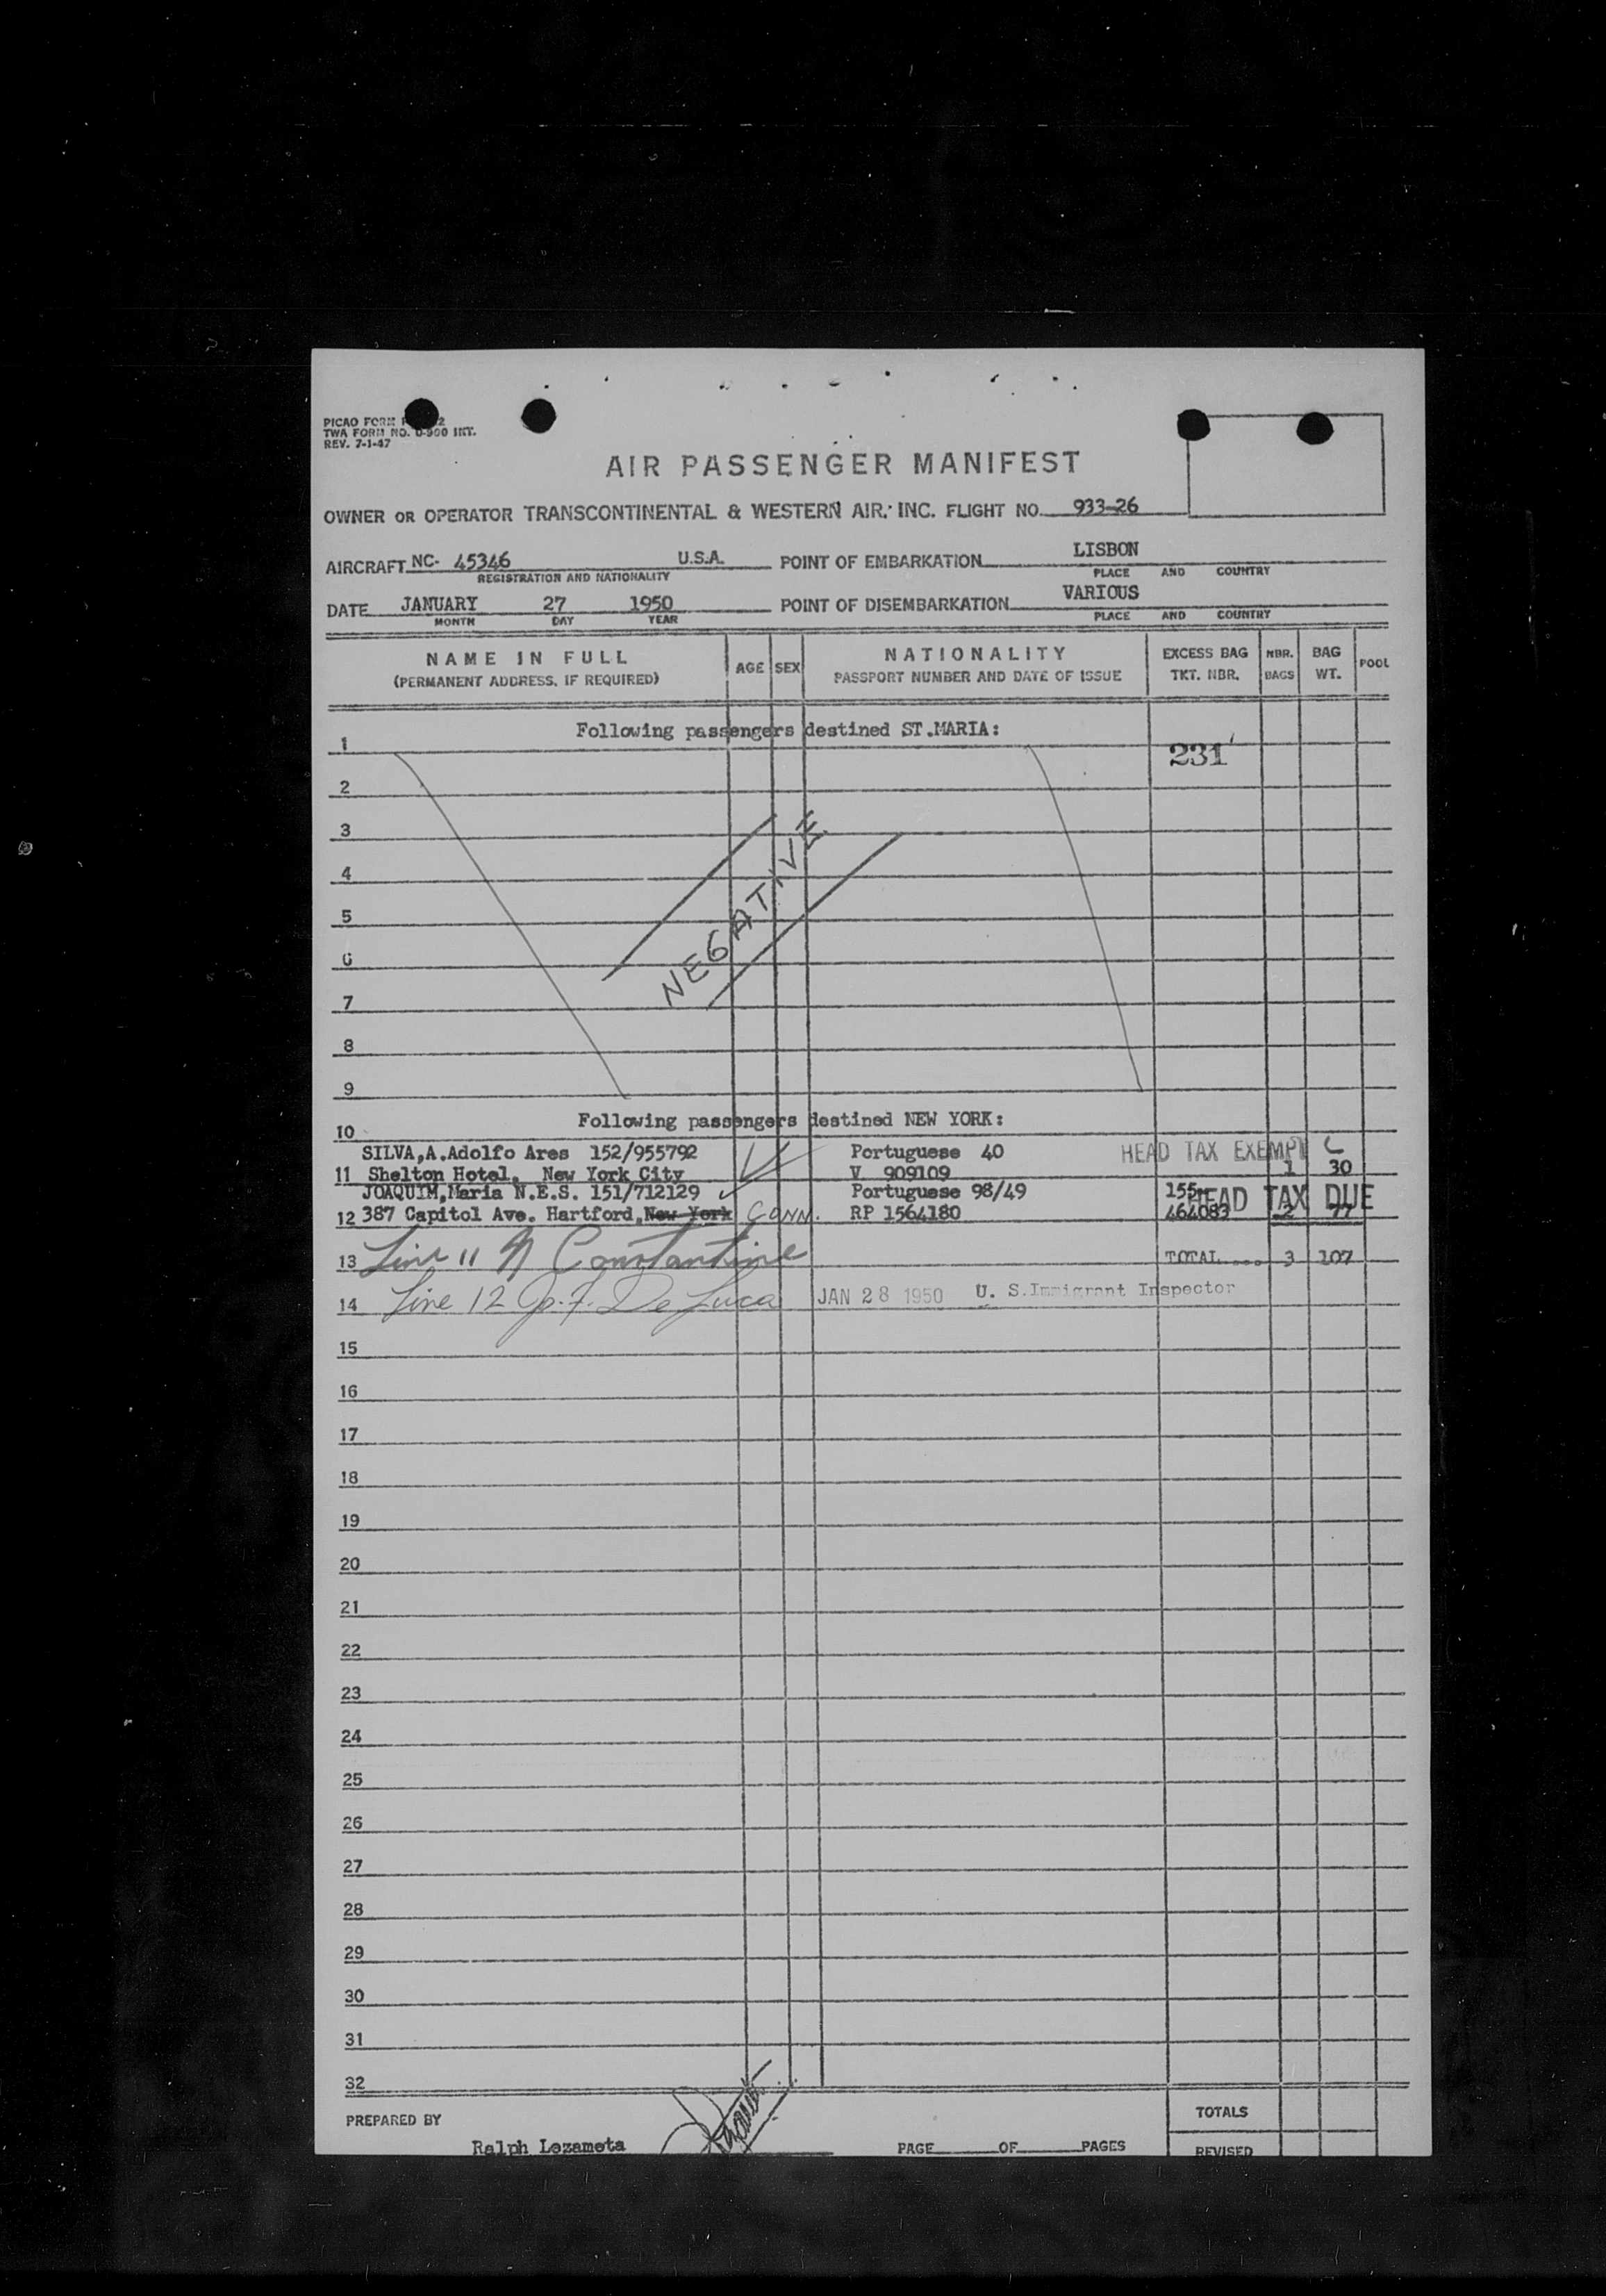 PICAO FORM
TWA FORM NO. 0-900 INT.
REV. 7-1-47
AIR PASSENGER MANIFEST
OWNER OR OPERATOR TRANSCONTINENTAL & WESTERN AIR, INC. FLIGHT NO. 933-26
AIRCRAFT NC- 45346 U.S.A. POINT OF EMBARKATION LISBON
REGISTRATION AND NATIONALITY PLACE AND COUNTRY
DATE JANUARY 27 1950 POINT OF DISEMBARKATION VARIOUS
MONTH DAY YEAR PLACE AND COUNTRY
NAME IN FULL AGE SEX NATIONALITY EXCESS BAG NBR. BAG POOL
(PERMANENT ADDRESS, IF REQUIRED) PASSPORT NUMBER AND DATE OF ISSUE TKT. NBR. BAGS WT.
1 Following passengers destined ST.MARIA:
231
2
3
4
5
6
7
NEGATIVE
8
9
10 Following passengers destined NEW YORK:
SILVA,A.Adolfo Ares 152/955792 Portuguese 40 HEAD TAX EXEMPT
11 Shelton Hotel, New York City V 909109 1 30
JOAQUIM,Maria N.E.S. 151/712129 Portuguese 98/49 155- HEAD TAX DUE
12 387 Capitol Ave. Hartford,New York CONN. RP 1564180 464083 2 77
13 Line 11 N Constantine TOTAL.... 3 107
14 Line 12 Jo. F. De Luca JAN 28 1950 U. S. Immigrant Inspector
15
16
17
18
19
20
21
22
23
24
25
26
27
28
29
30
31
32
PREPARED BY TOTALS
Ralph Lozameta PAGE OF PAGES REVISED